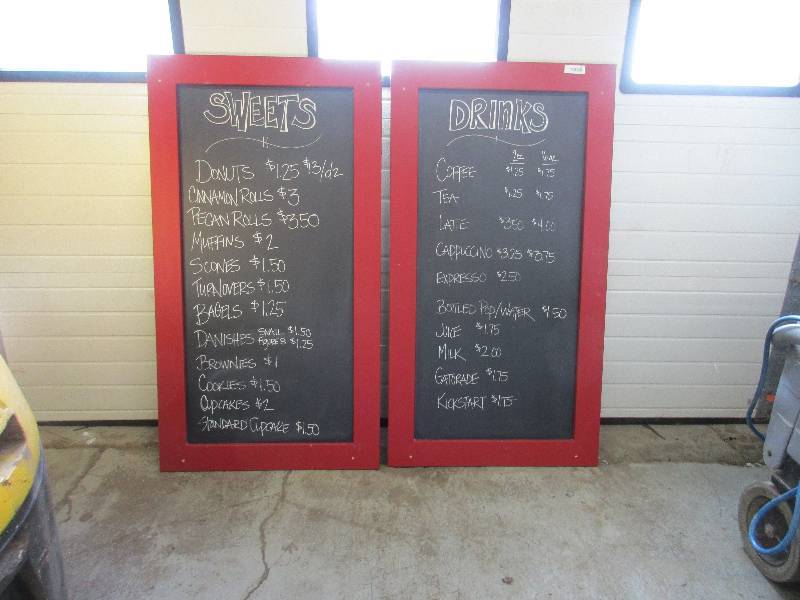 SWEETS
DONUTS $1.25 $13/dz
CINNAMON ROLLS $3
PECAN ROLLS $3.50
MUFFINS $2
SCONES $1.50
TURNOVERS $1.50
BAGELS $1.25
DANISHES SMALL $1.50
FIGURE 8 $1.25
BROWNIES $1
COOKIES $1.50
CUPCAKES $2
STANDARD CUPCAKE $1.50
DRINKS
COFFEE $1.25 $1.75
TEA $1.25 $1.75
LATTE $3.50 $4.00
CAPPUCCINO $3.25 $3.75
EXPRESSO $2.50
BOTTLED POP/WATER $1.50
JUICE $1.75
MILK $2.00
GATORADE $1.75
KICKSTART $1.75